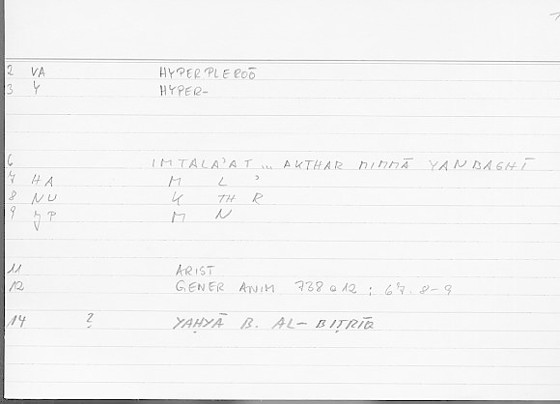 2 VA HYPERPLEROŌ
3 Y HYPER-
6 IMTALAʾAT ... AKTHAR MIMMĀ YANBAGHĪ
7 HA M L ʾ
8 NU K TH R
9 JP M N
11 ARIST
12 GENER ANIM 738a12 ; 67.8-9
14 ? YAḤYĀ B. AL-BIṬRĪQ